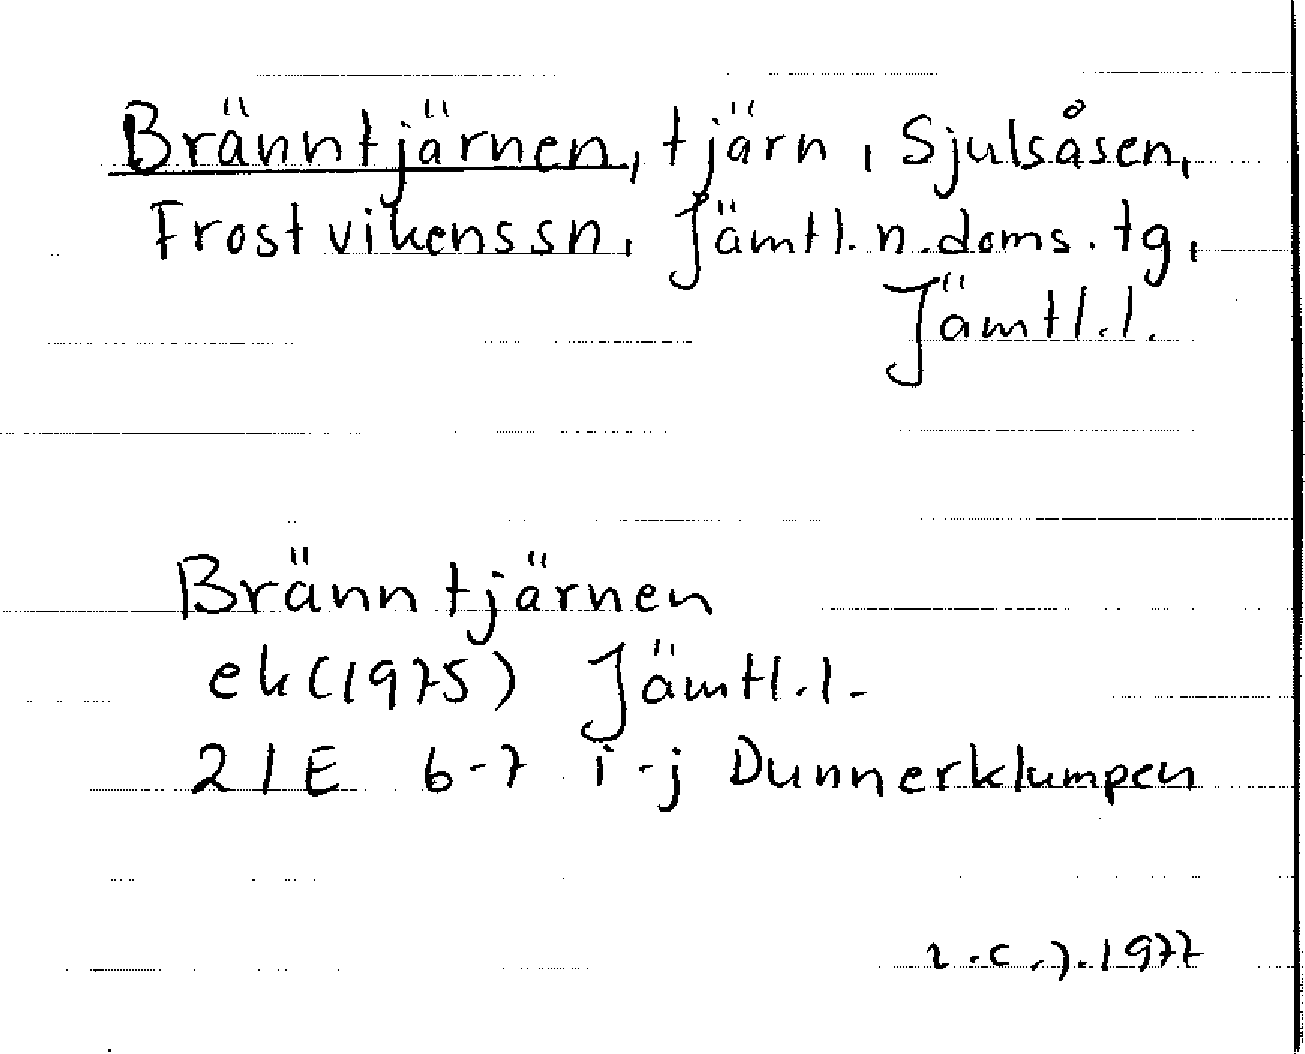 Bränntjärnen, tjärn, Sjulsåsen,
Frostvikens sn, Jämtl. n. doms. tg,
Jämtl. l.
Bränntjärnen
ek (1975) Jämtl. l.
21E 6-7 i-j Dunnerklumpen
1977